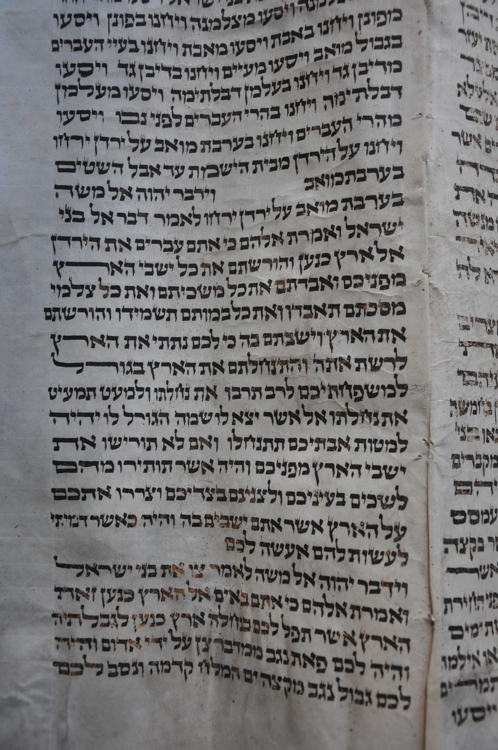 ויסעו מצלמנה ויחנו בפונן ויסעו
מפונן ויחנו באבת ויסעו מאבת ויחנו בעיי העברים
בגבול מואב ויסעו מעיים ויחנו בדיבן גד ויסעו
מדיבן גד ויחנו בעלמן דבלתימה ויסעו מעלמן
דבלתימה ויחנו בהרי העברים לפני נבו ויסעו
מהרי העברים ויחנו בערבת מואב על ירדן ירחו
ויחנו על הירדן מבית הישמת עד אבל השטים
בערבת מואב וידבר יהוה אל משה
בערבת מואב על ירדן ירחו לאמר דבר אל בני
ישראל ואמרת אלהם כי אתם עברים את הירדן
אל ארץ כנען והורשתם את כל ישבי הארץ
מפניכם ואבדתם את כל משכיתם ואת כל צלמי
מסכתם תאבדו ואת כל במותם תשמידו והורשתם
את הארץ וישבתם בה כי לכם נתתי את הארץ
לרשת אתה והתנחלתם את הארץ בגורל
למשפחתיכם לרב תרבו את נחלתו ולמעט תמעיט
את נחלתו אל אשר יצא לו שמה הגורל לו יהיה
למטות אבתיכם תתנחלו ואם לא תורישו את
ישבי הארץ מפניכם והיה אשר תותירו מהם
לשכים בעיניכם ולצנינם בצדיכם וצררו אתכם
על הארץ אשר אתם ישבים בה והיה כאשר דמיתי
לעשות להם אעשה לכם
וידבר יהוה אל משה לאמר צו את בני ישראל
ואמרת אלהם כי אתם באים אל הארץ כנען זאת
הארץ אשר תפל לכם בנחלה ארץ כנען לגבלתיה
והיה לכם פאת נגב ממדבר צן על ידי אדום והיה
לכם גבול נגב מקצה ים המלח קדמה ונסב לכם